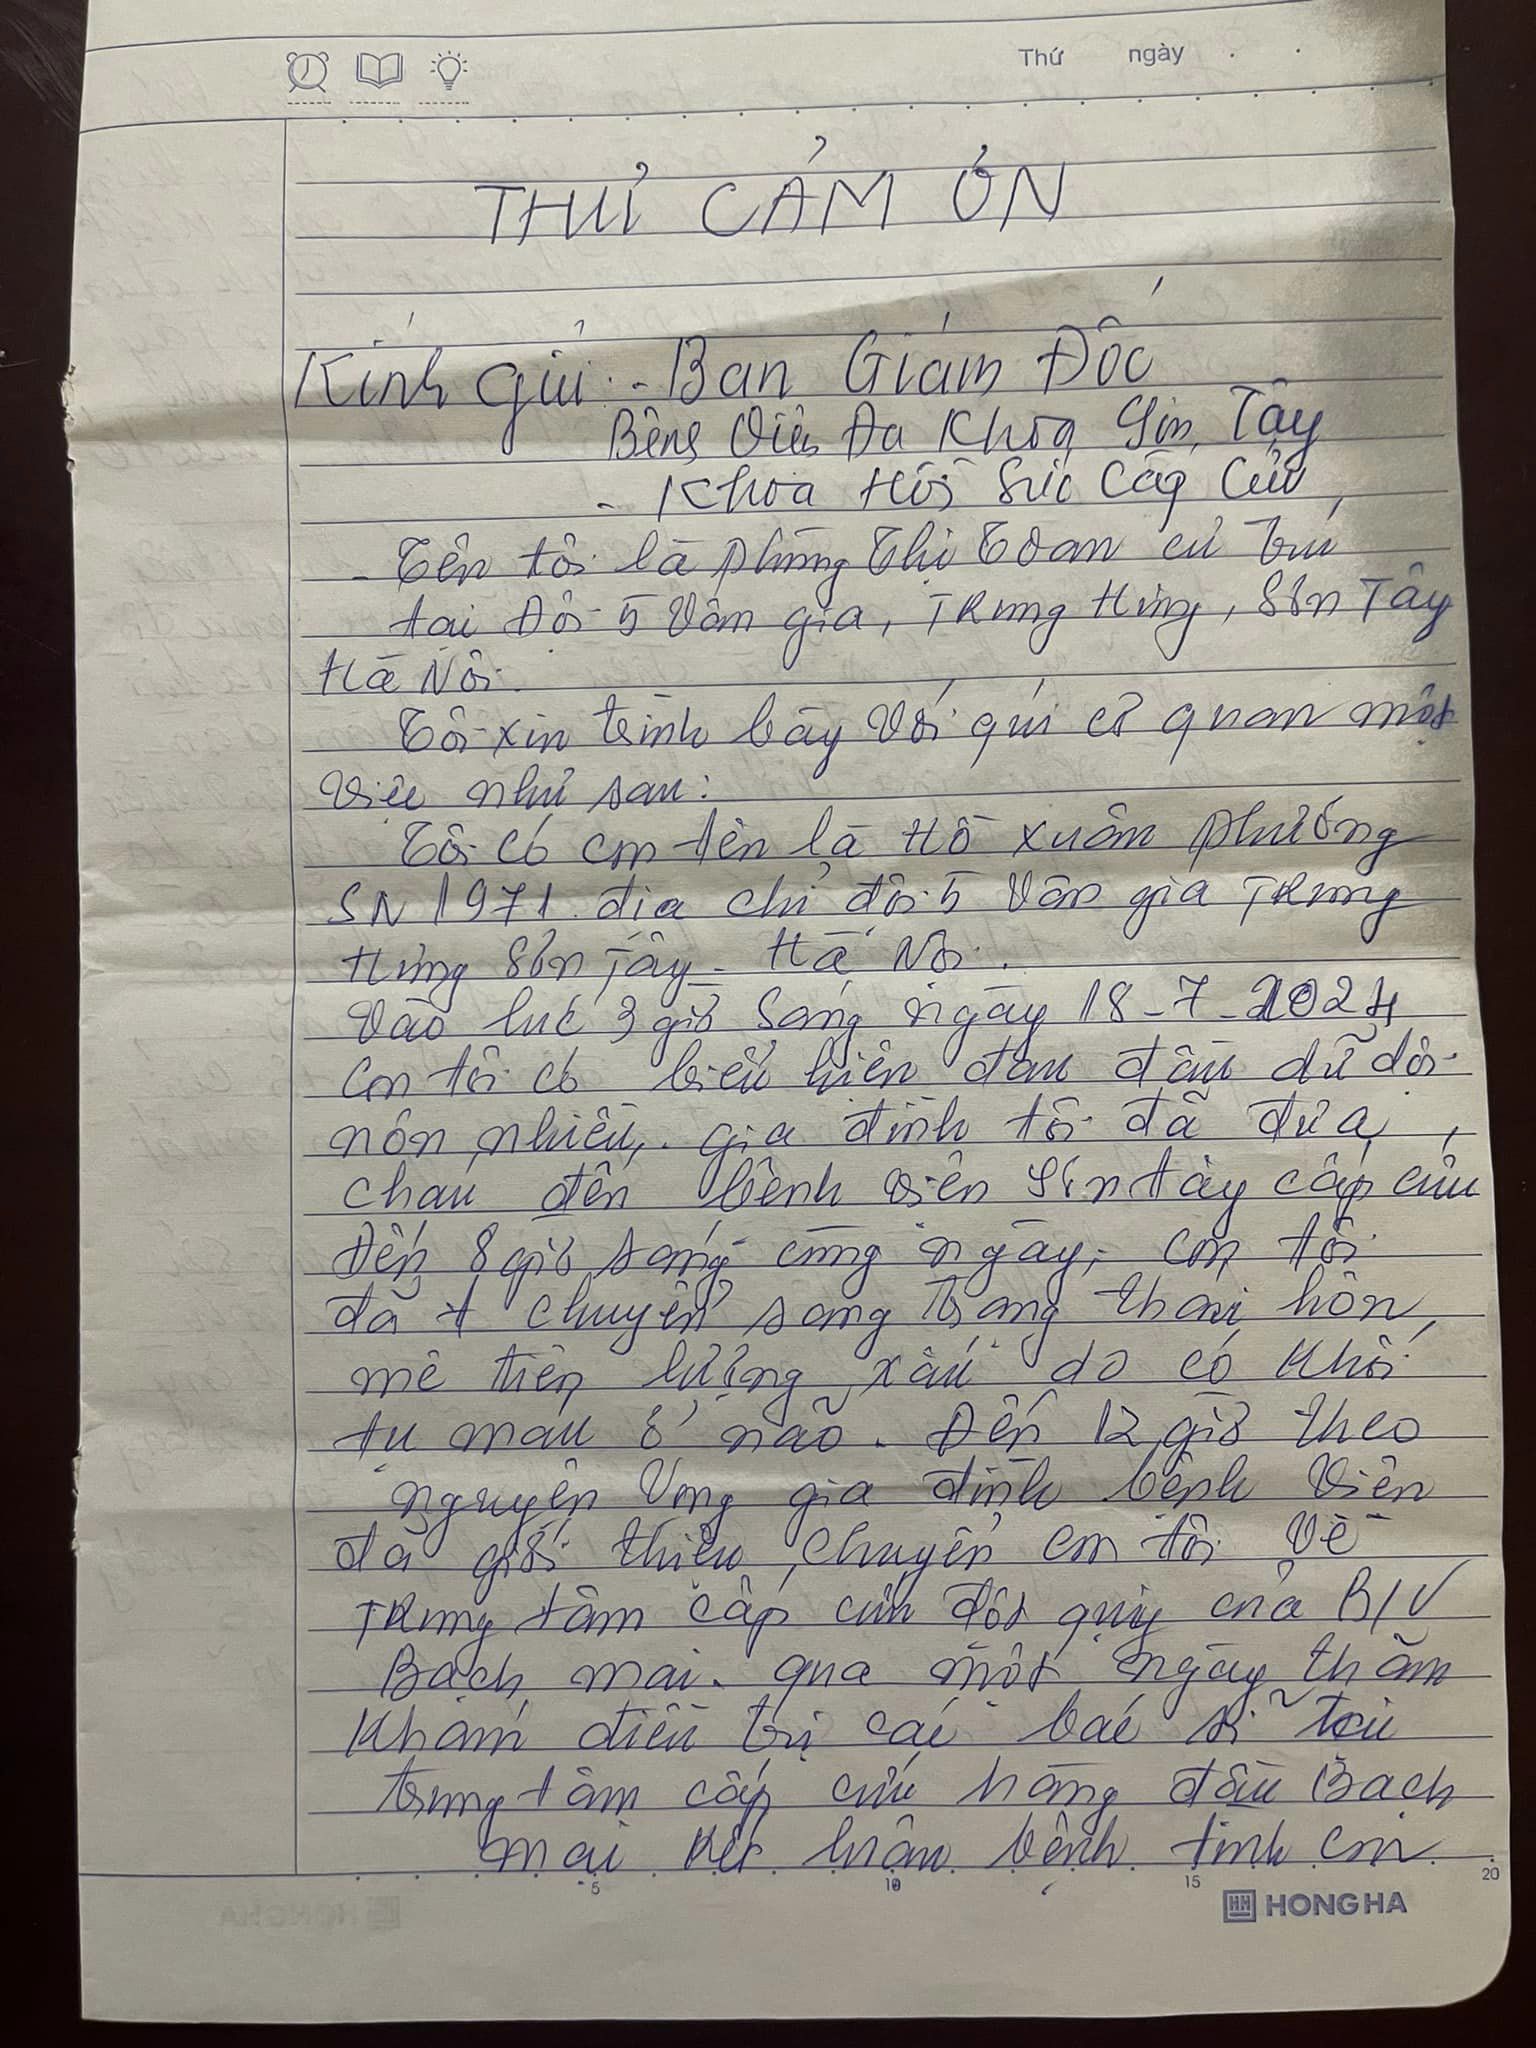 Thứ ngày
THƯ CẢM ƠN
Kính gửi: - Ban Giám Đốc
Bệnh Viện Đa Khoa Sơn Tây
- Khoa Hồi Sức Cấp Cứu
- Tên tôi là Phùng Thị Toan cư trú
tại Đội 5 Vân gia, Trung Hưng, Sơn Tây
Hà Nội.
Tôi xin trình bày với quí cơ quan một
việc như sau:
Tôi có con tên là Hồ Xuân Phương
SN 1971 địa chỉ đội 5 Vân gia Trung
Hưng Sơn Tây - Hà Nội.
Vào lúc 3 giờ sáng ngày 18-7-2024
con tôi có biểu hiện đau đầu dữ dội
nôn nhiều, gia đình tôi đã đưa
cháu đến bệnh viện Sơn tây cấp cứu
Đến 8 giờ sáng cùng ngày, con tôi
đã chuyển sang trạng thái hôn
mê tiên lượng xấu do có khối
tụ máu ở não. Đến 12 giờ theo
nguyện vọng gia đình bệnh viện
đã giới thiệu chuyển con tôi về
Trung tâm cấp cứu đột quỵ của B/V
Bạch mai. qua một ngày thăm
khám điều trị các bác sĩ tại
trung tâm cấp cứu hàng đầu Bạch
mai kết luận bệnh tình con
5 10 15 20
HONG HA